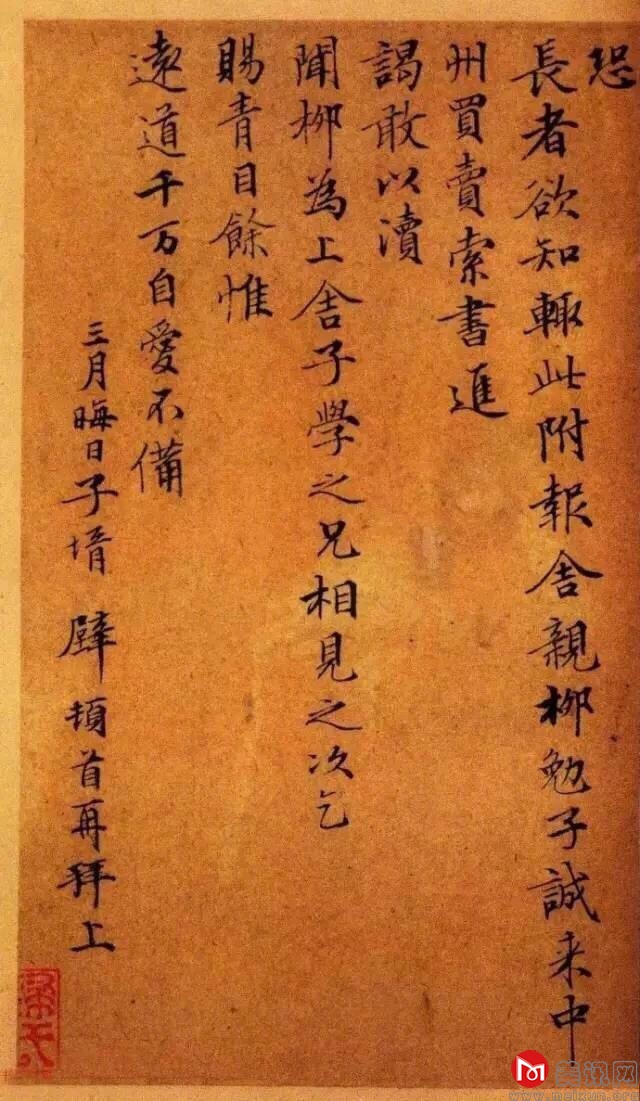 恐
長者欲知輙此附報舍親柳勉子誠来中
州買賣索書進
謁敢以瀆
聞柳為上舍子學之兄相見之次乞
賜青目餘惟
遠道千万自愛不備
三月晦日子壻 璧 頓首再拜上
美讯网
www.meixun.org